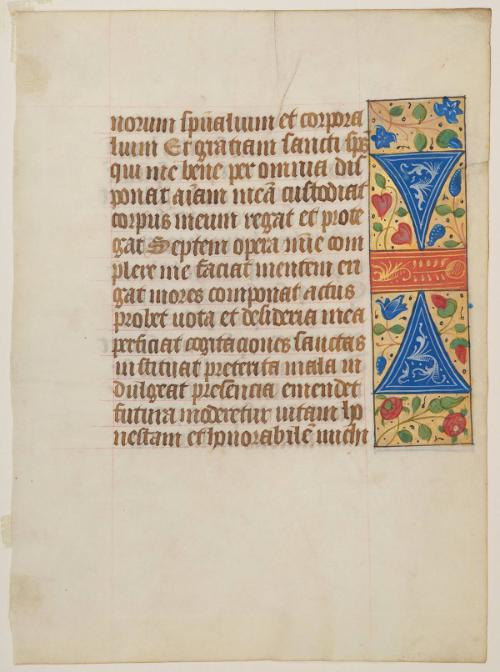 norum sp̄ualium et corpora
lium Et gratiam sancti sp̄s
qui me bene per omnia dis
ponat aīam meā custodiat
corpus meum regat et prote
gat Septem opera mīe com
plere me faciat mentem eri
gat mores componat actus
probet uota et desideria mea
perficiat cogitaciones sanctas
instituat preterita mala in
dulgeat presencia emendet
futura moderetur uitam ho
nestam et honorabilē michi